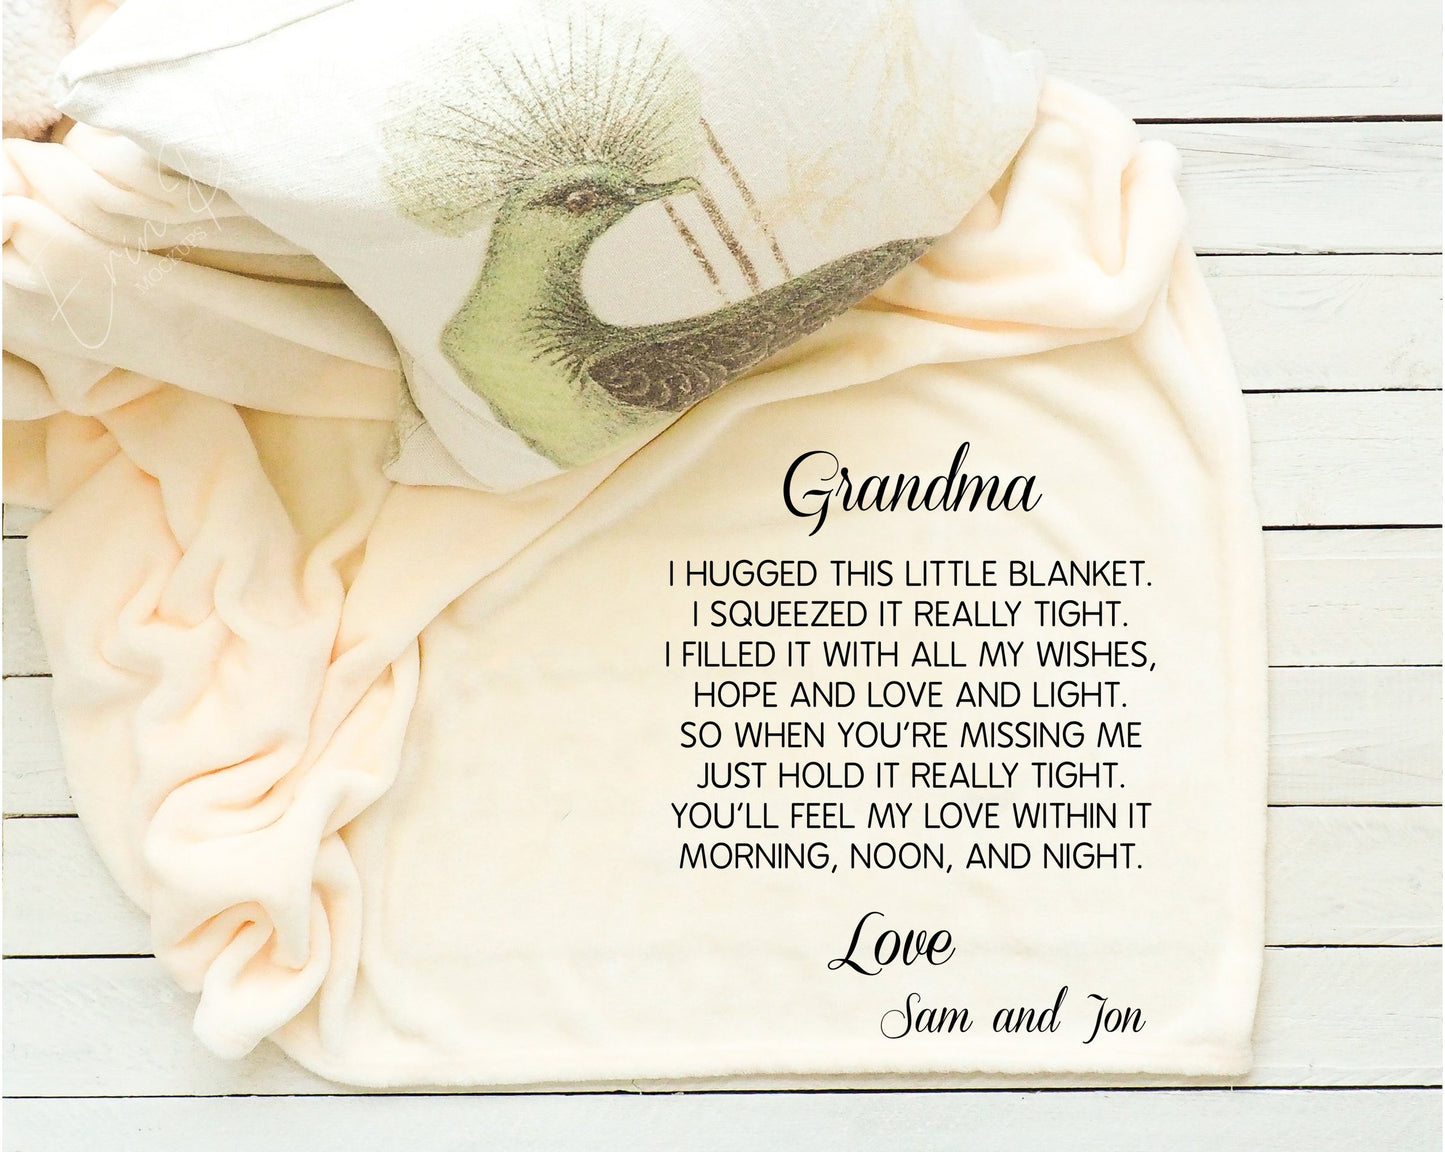 Erin R
MOCKUPS
Grandma
I HUGGED THIS LITTLE BLANKET.
I SQUEEZED IT REALLY TIGHT.
I FILLED IT WITH ALL MY WISHES,
HOPE AND LOVE AND LIGHT.
SO WHEN YOU'RE MISSING ME
JUST HOLD IT REALLY TIGHT.
YOU'LL FEEL MY LOVE WITHIN IT
MORNING, NOON, AND NIGHT.
Love
Sam and Jon